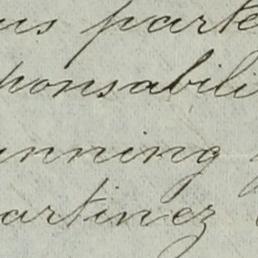 us parte
ponsabili
unning
artinez